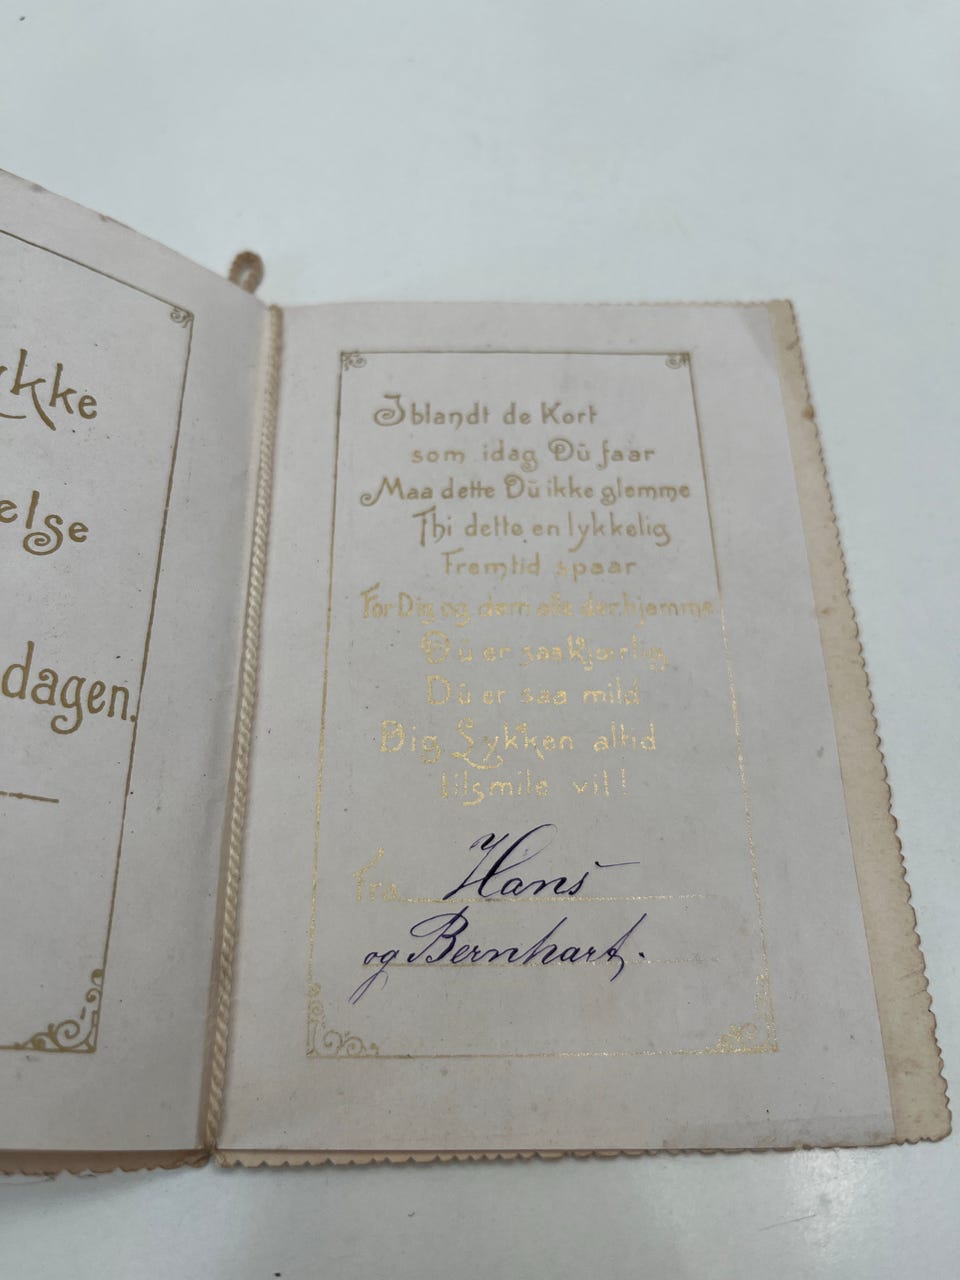 ykke
else
dagen.
Iblandt de Kort
som idag Dü faar
Maa dette Dü ikke glemme
Thi dette en lykkelig
Fremtid spaar
For Dig og dem alle der hjemme
Dü er saa kjærlig
Dü er saa mild
Dig Lykken altid
tilsmile vil!
Fra Hans
og Bernhart.